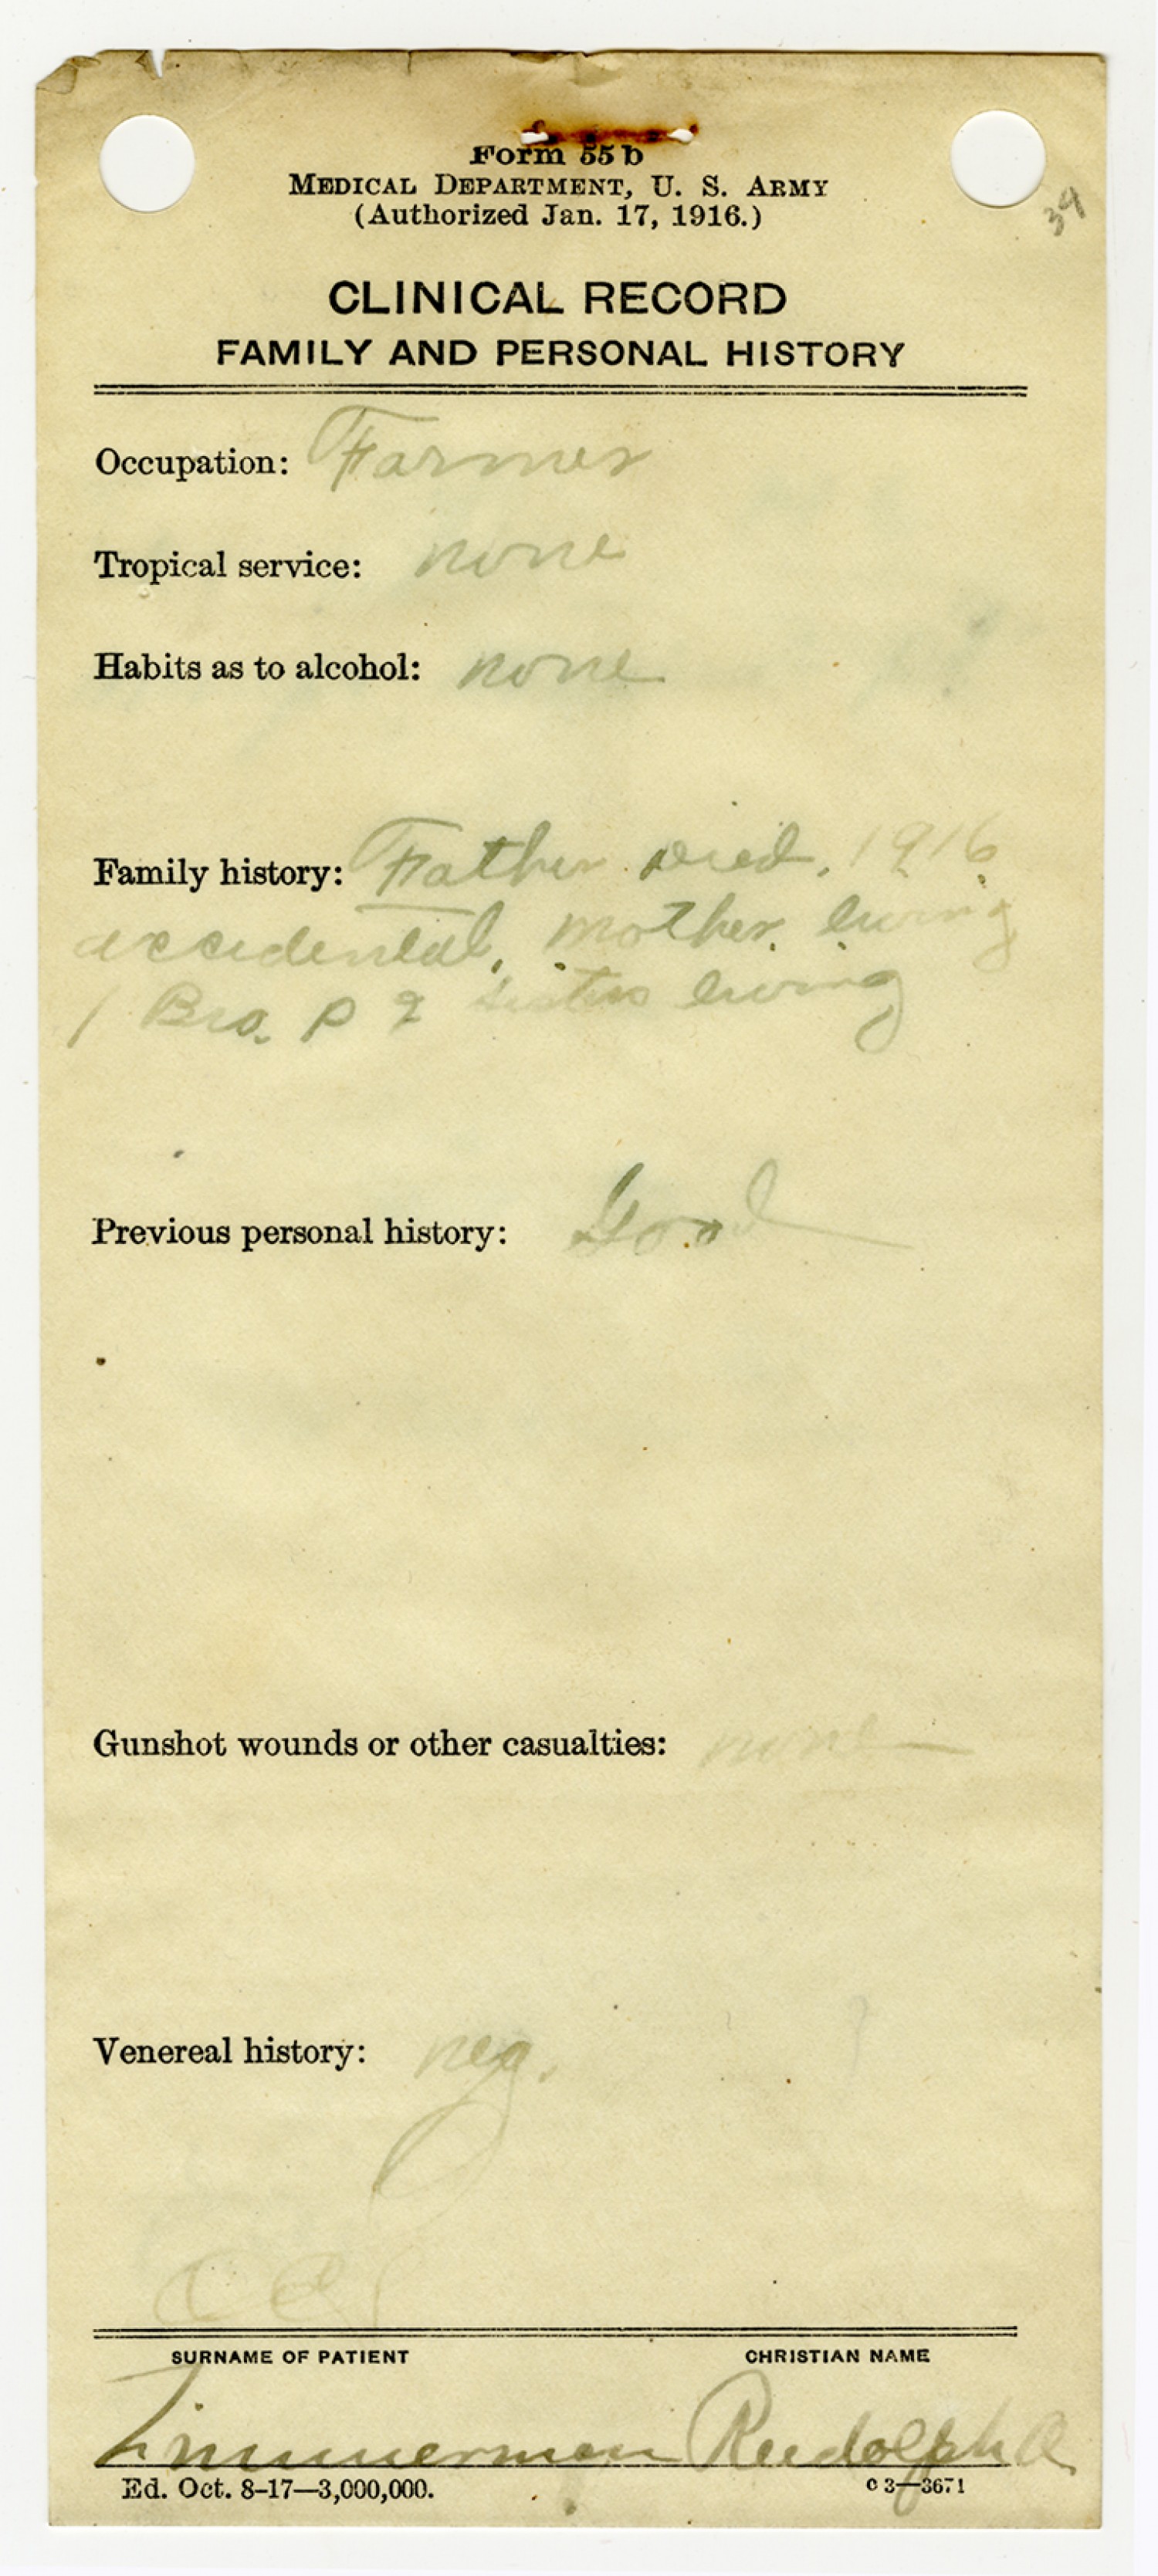 Form 55 b
MEDICAL DEPARTMENT, U. S. ARMY
(Authorized Jan. 17, 1916.)
34
CLINICAL RECORD
FAMILY AND PERSONAL HISTORY
Occupation: Farmer
Tropical service: none
Habits as to alcohol: none
Family history: Father died, 1916
accidental, mother living
1 Bro. & 2 sisters living
Previous personal history: Good
Gunshot wounds or other casualties: none
Venereal history: neg.
SURNAME OF PATIENT CHRISTIAN NAME
Zimmerman Rudolph A
Ed. Oct. 8-17—3,000,000. c 3—3671